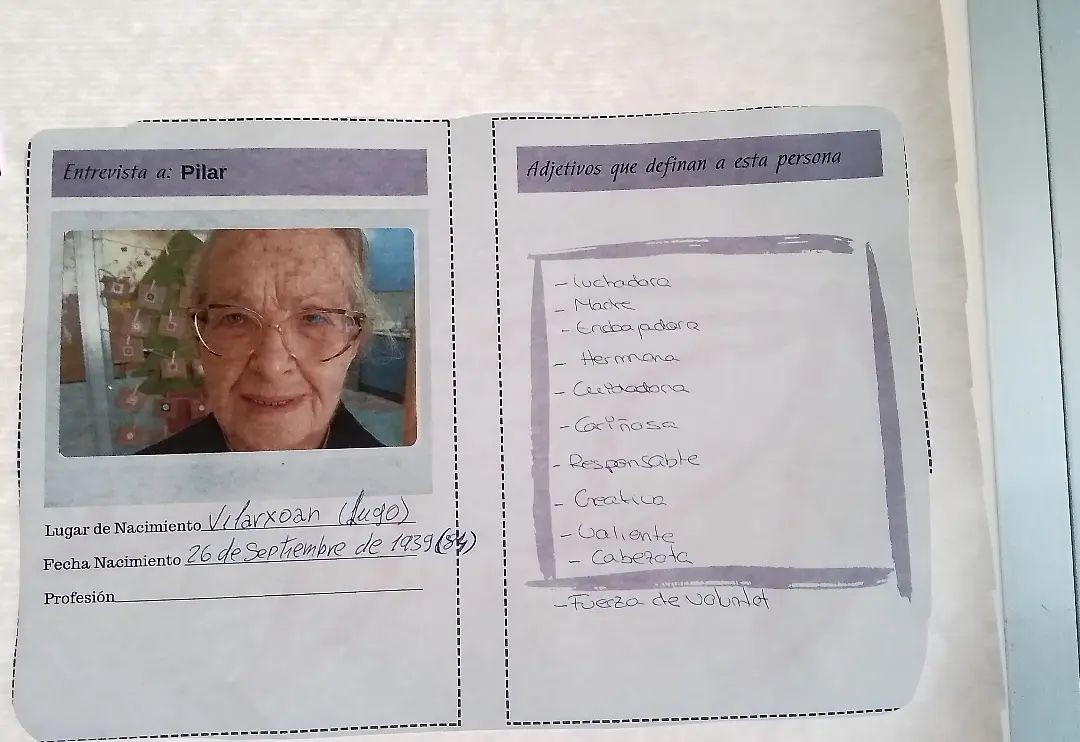 Entrevista a: Pilar
Lugar de Nacimiento Vilarxoan (Lugo)
Fecha Nacimiento 26 de Septiembre de 1939 (84)
Profesión
Adjetivos que definan a esta persona
- Luchadora
- Madre
- Enbajadora
- Hermana
- Cuidadora
- Cariñosa
- Responsable
- Creativa
- Valiente
- Cabezota
- Fuerza de